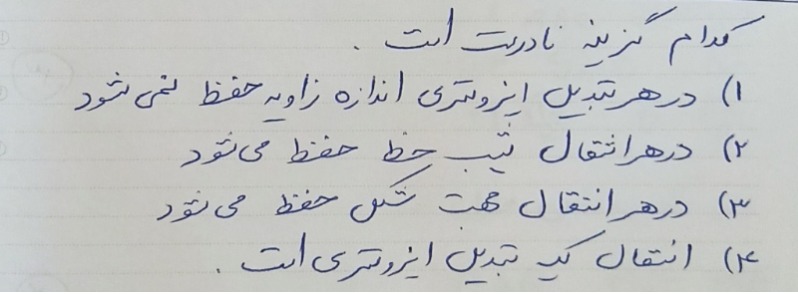 کدام گزینه نادرست است .
۱) در هر تبدیل ایزومتری اندازه زاویه حفظ نمی شود
۲) در هر انتقال شیب خط حفظ می شود
۳) در هر انتقال جهت شکل حفظ می شود
۴) انتقال یک تبدیل ایزومتری است .